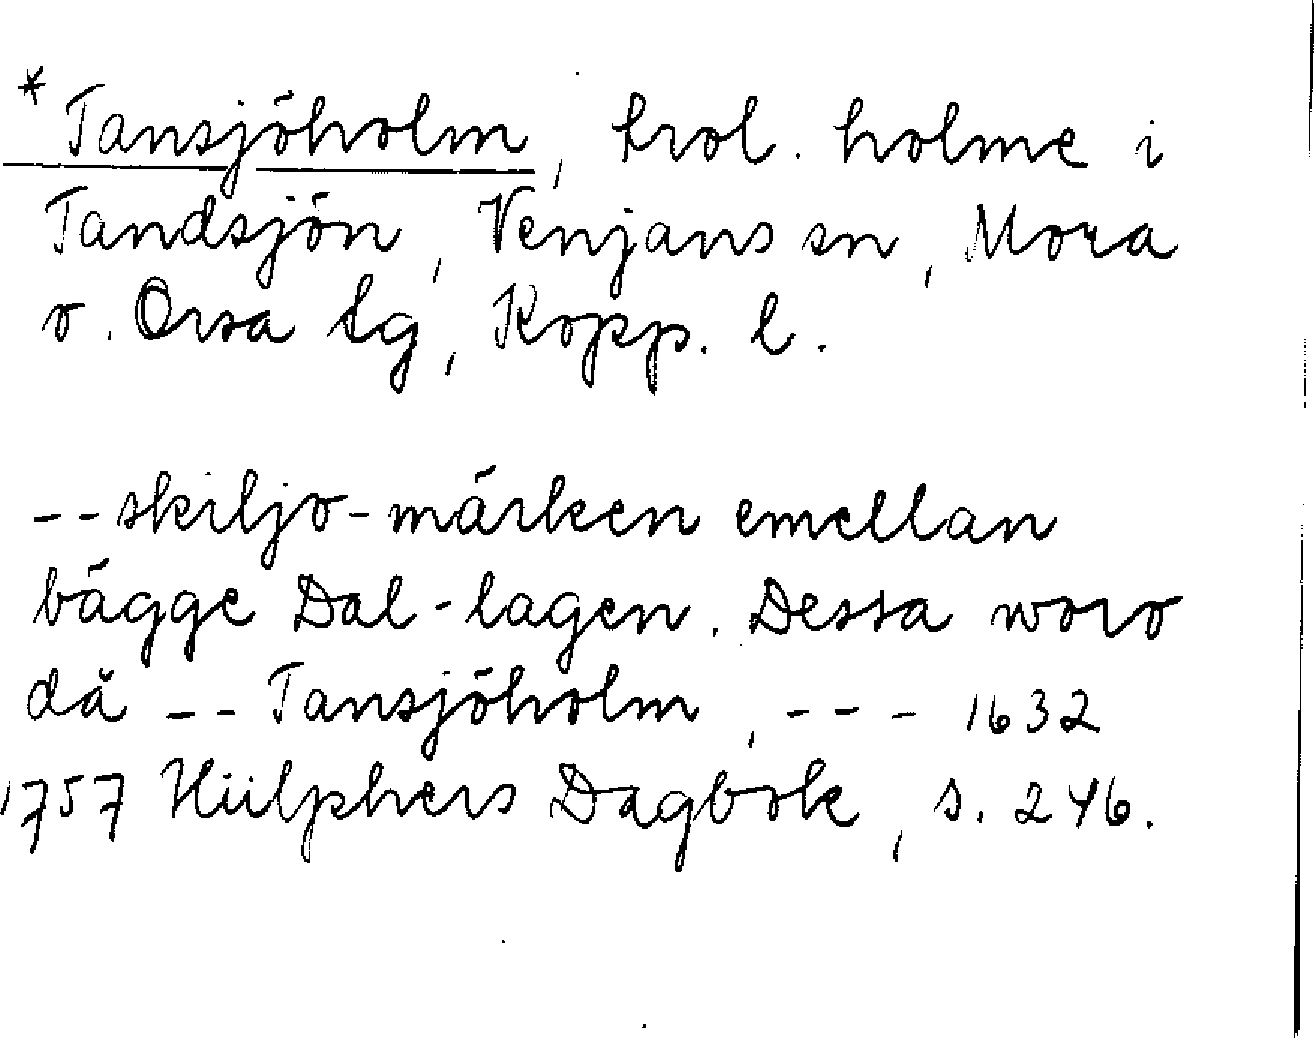 *Tansjöholm, trol. holme i
Tandsjön, Venjans sn, Mora
o. Orsa tg, Kopp. l.
--skiljo-märken emellan
bägge Dal-lagen. Dessa woro
då -- Tansjöholm, --- 1632
1757 Hülphers Dagbok, s. 246.